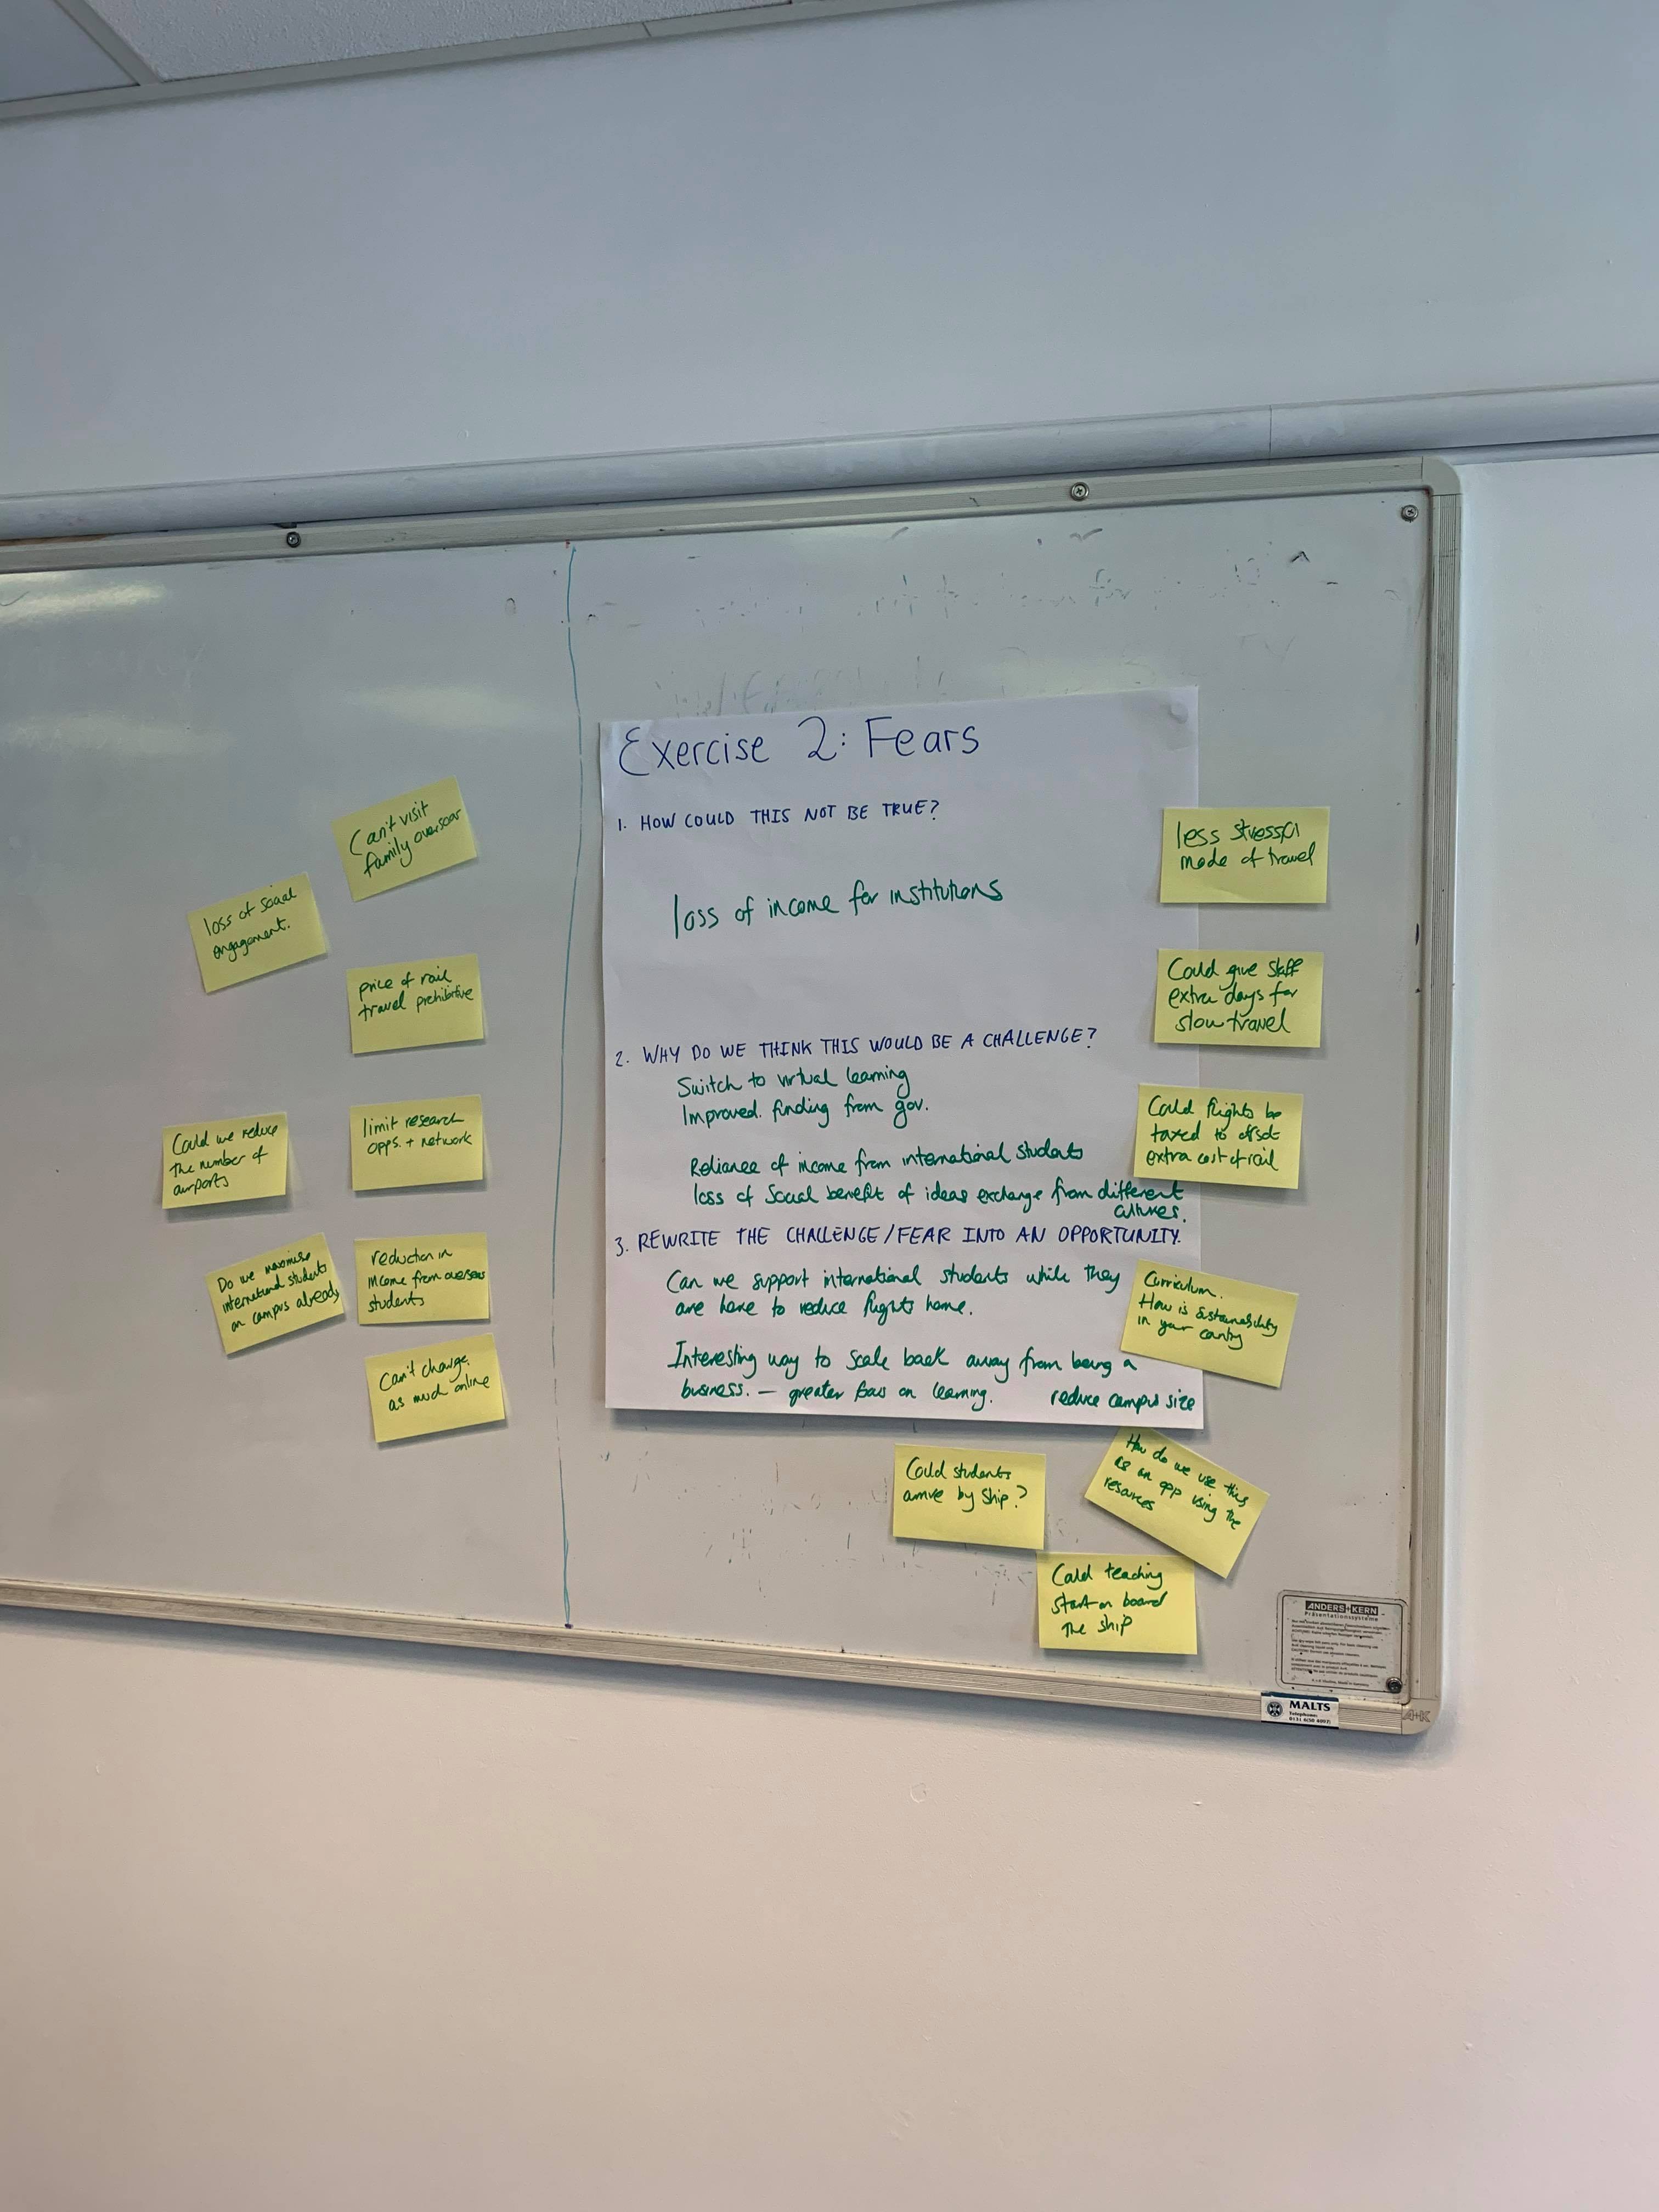 Can't visit
family overseas
loss of social
engagement.
price of rail
travel prohibitive
Could we reduce
the number of
airports
limit research
opps. + network
Do we maximise
international students
on campus already
reduction in
income from overseas
students
Can't charge
as much online
Exercise 2: Fears
1. HOW COULD THIS NOT BE TRUE?
loss of income for institutions
2. WHY DO WE THINK THIS WOULD BE A CHALLENGE?
Switch to virtual learning
Improved. funding from gov.
Reliance of income from international students
loss of social benefit of ideas exchange from different
cultures.
3. REWRITE THE CHALLENGE/FEAR INTO AN OPPORTUNITY.
Can we support international students while they
are here to reduce flights home.
Interesting way to scale back away from being a
business. — greater focus on learning.
reduce campus size
less stressful
mode of travel
Could give staff
extra days for
slow travel
Could flights be
taxed to offset
extra cost of rail
Curriculum.
How is sustainability
in your country
Could students
arrive by ship?
How do we use this
as an opp using the
resources
Could teaching
start on board
the ship
ANDERS+KERN
Präsentationssysteme
MALTS
Telephone:
A+K